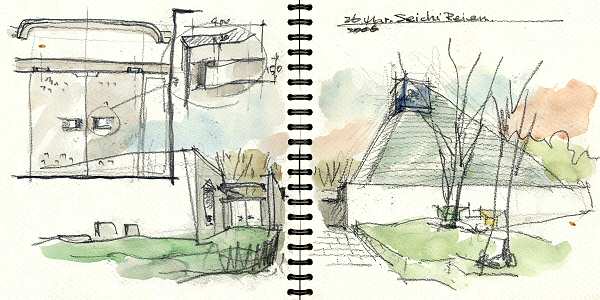 400
26 Mar. Seichi Reien.
2006